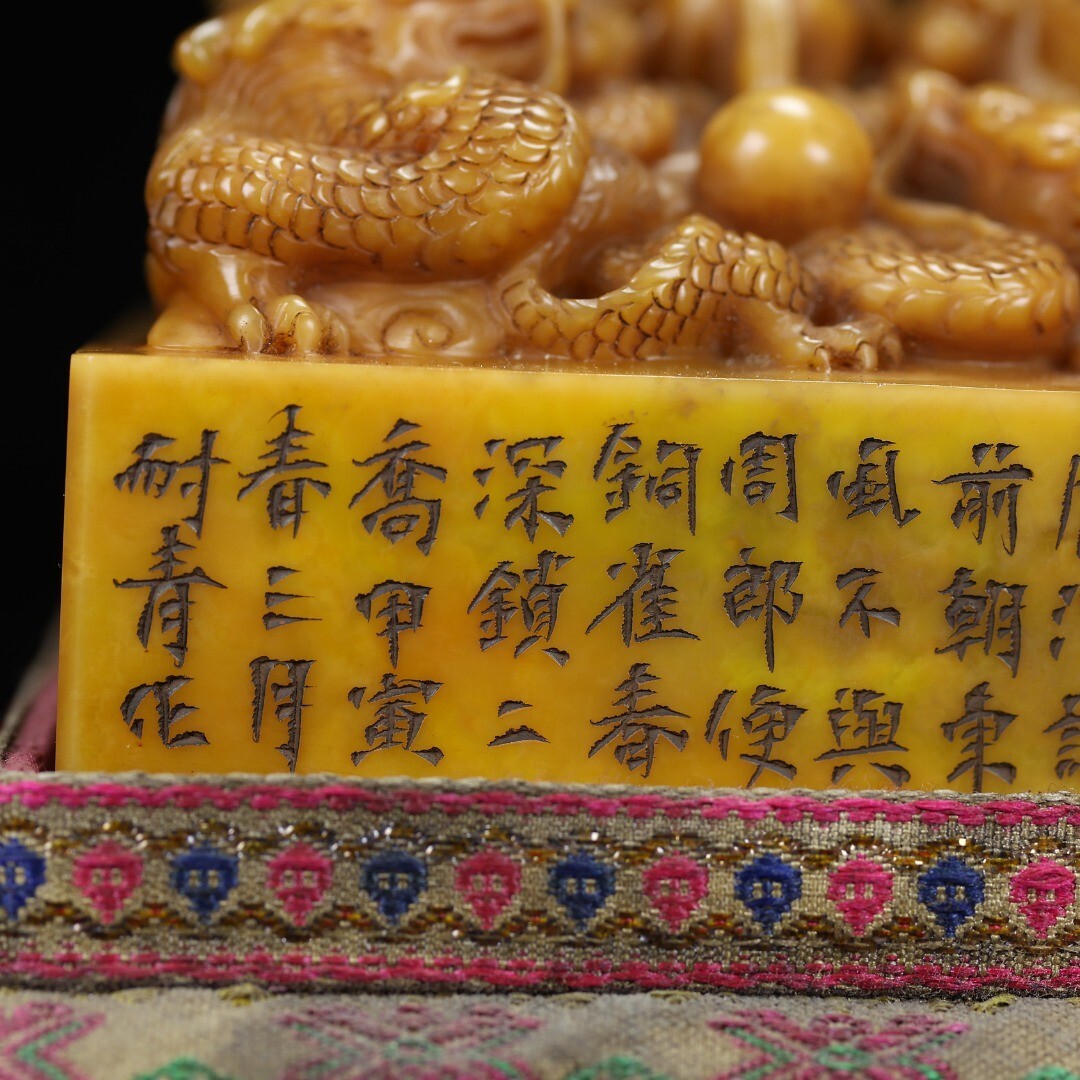 前朝東
風不與
周郎便
銅雀春
深鎖二
喬甲寅
春三月
耐青作